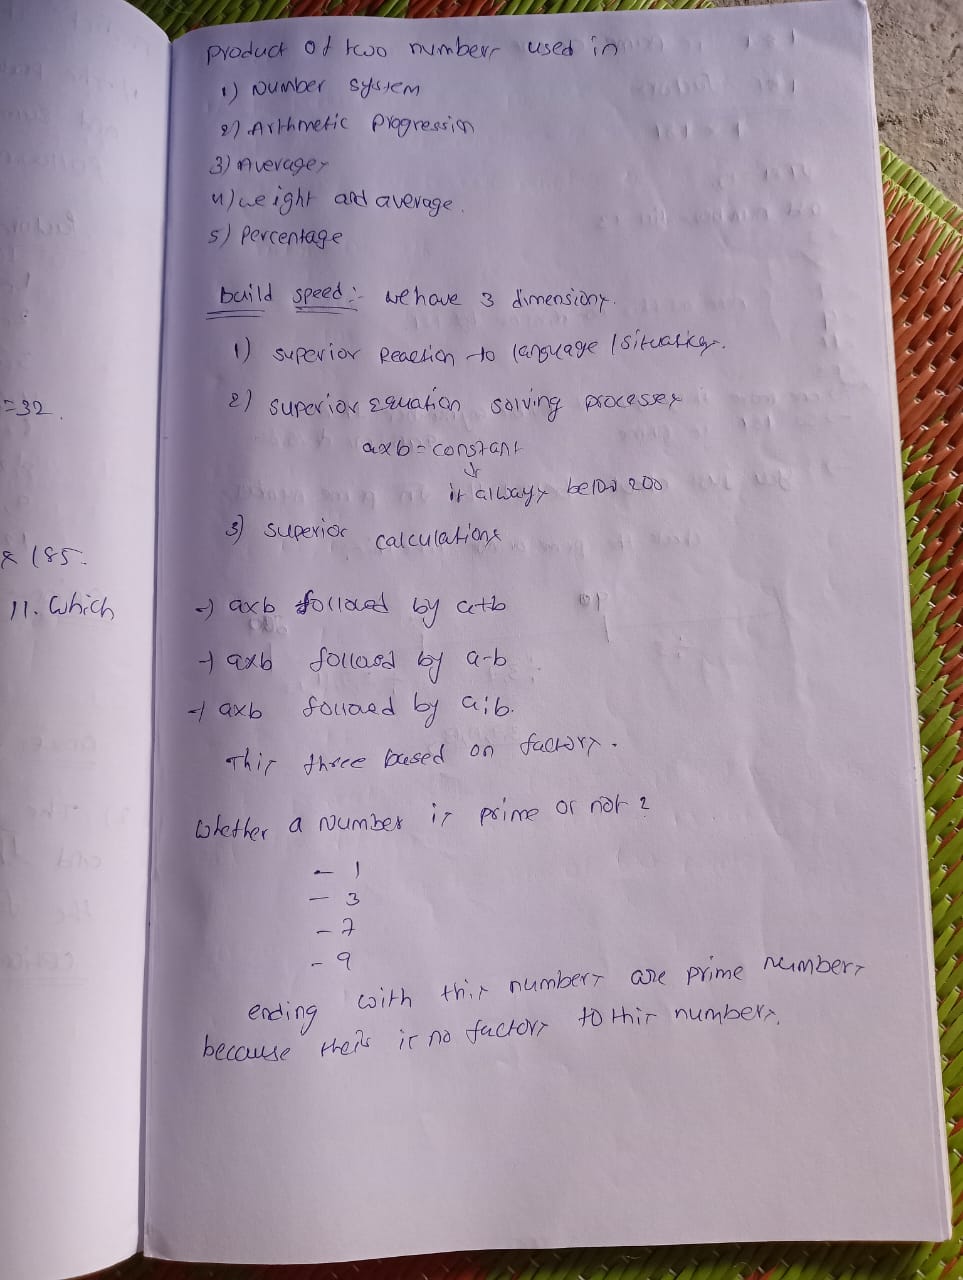 =32.
& 185.
11. Which
product of two numbers used in
1) Number system
2) Arthmetic Progression
3) Averages
4) weight and average.
5) Percentage
build speed :- we have 3 dimensions.
1) superior Reaction to language / situation.
2) superior Equation solving processes
axb = constant
↓
it always below 200
3) superior calculations
→ axb followed by a+b
→ axb followed by a-b
→ axb followed by a:b.
This three based on factors.
Whether a Number is prime or not ?
- 1
- 3
- 7
- 9
ending with this numbers are prime numbers
because their is no factors to this numbers.